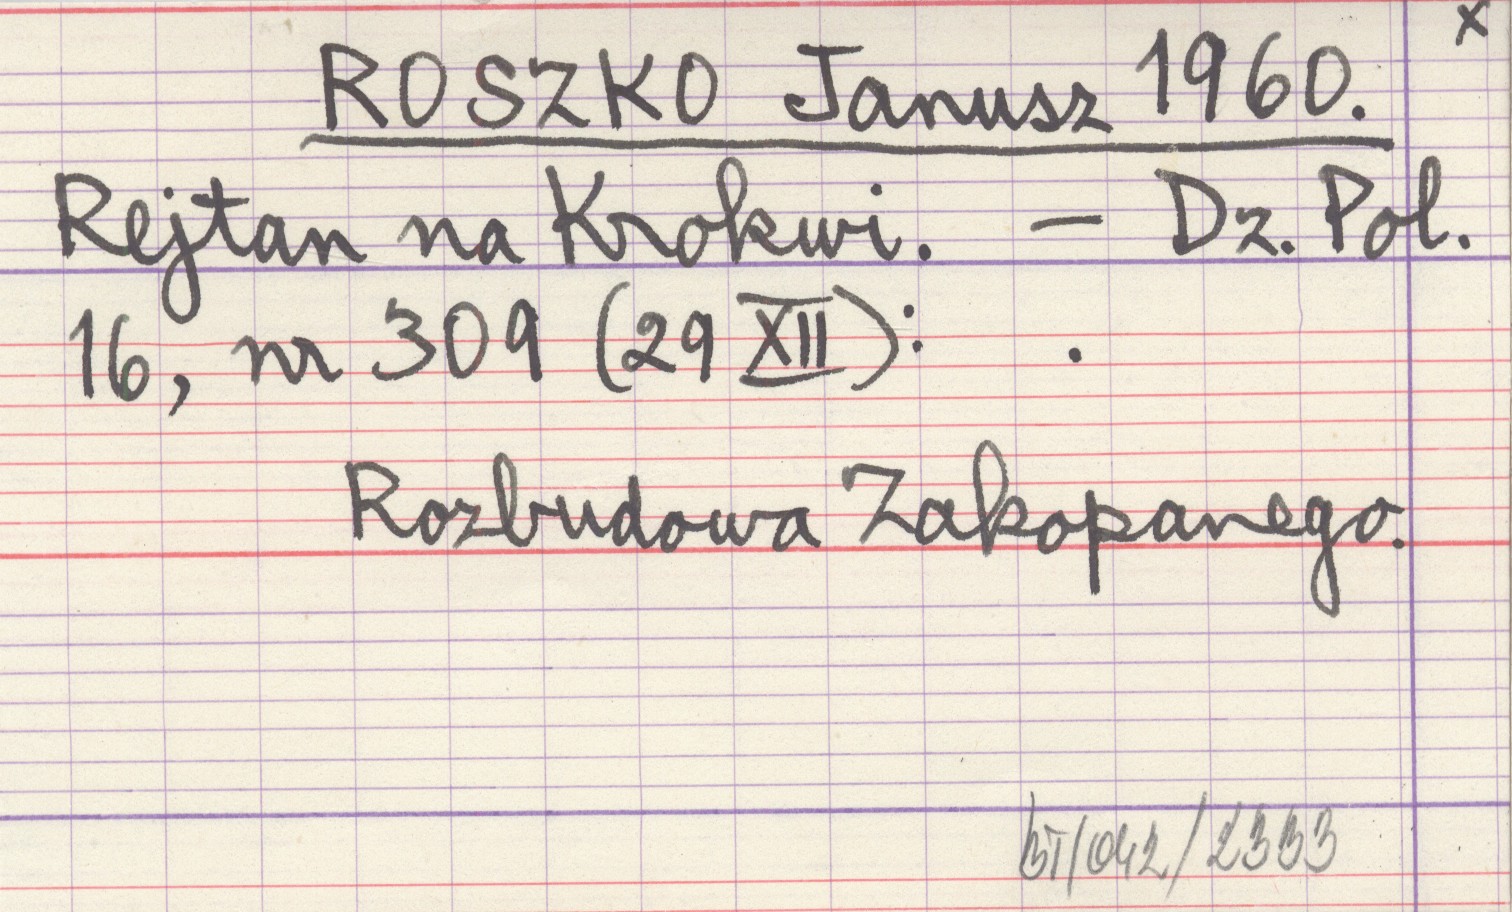 x
ROSZKO Janusz 1960.
Rejtan na Krokwi. — Dz. Pol.
16, nr 309 (29 XII): .
Rozbudowa Zakopanego.
BT/042/2333